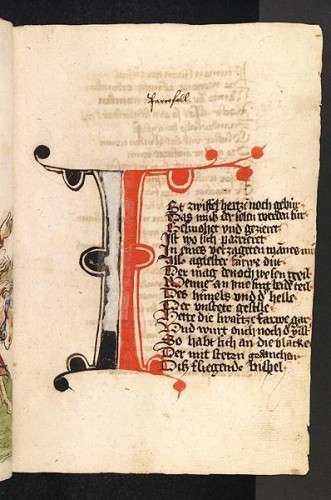 Parcifall
I
St zwiffel hertze noch gebur
Das mus der selen werden sur
Gesmohet und gezieret
Ist wo sich parrieret
In eines verzageten manes mut
Also agelster varwe dut
Der mag denoch wesen geil
Wenne an ime sint bede teil
Des himels und d' helle
Der unstete geselle
Hette die swartze varwe gar
Und wurt ouch noch d'
So habt sich an die blancke
Der mit stetten gedancken
Dis fliegende bispel